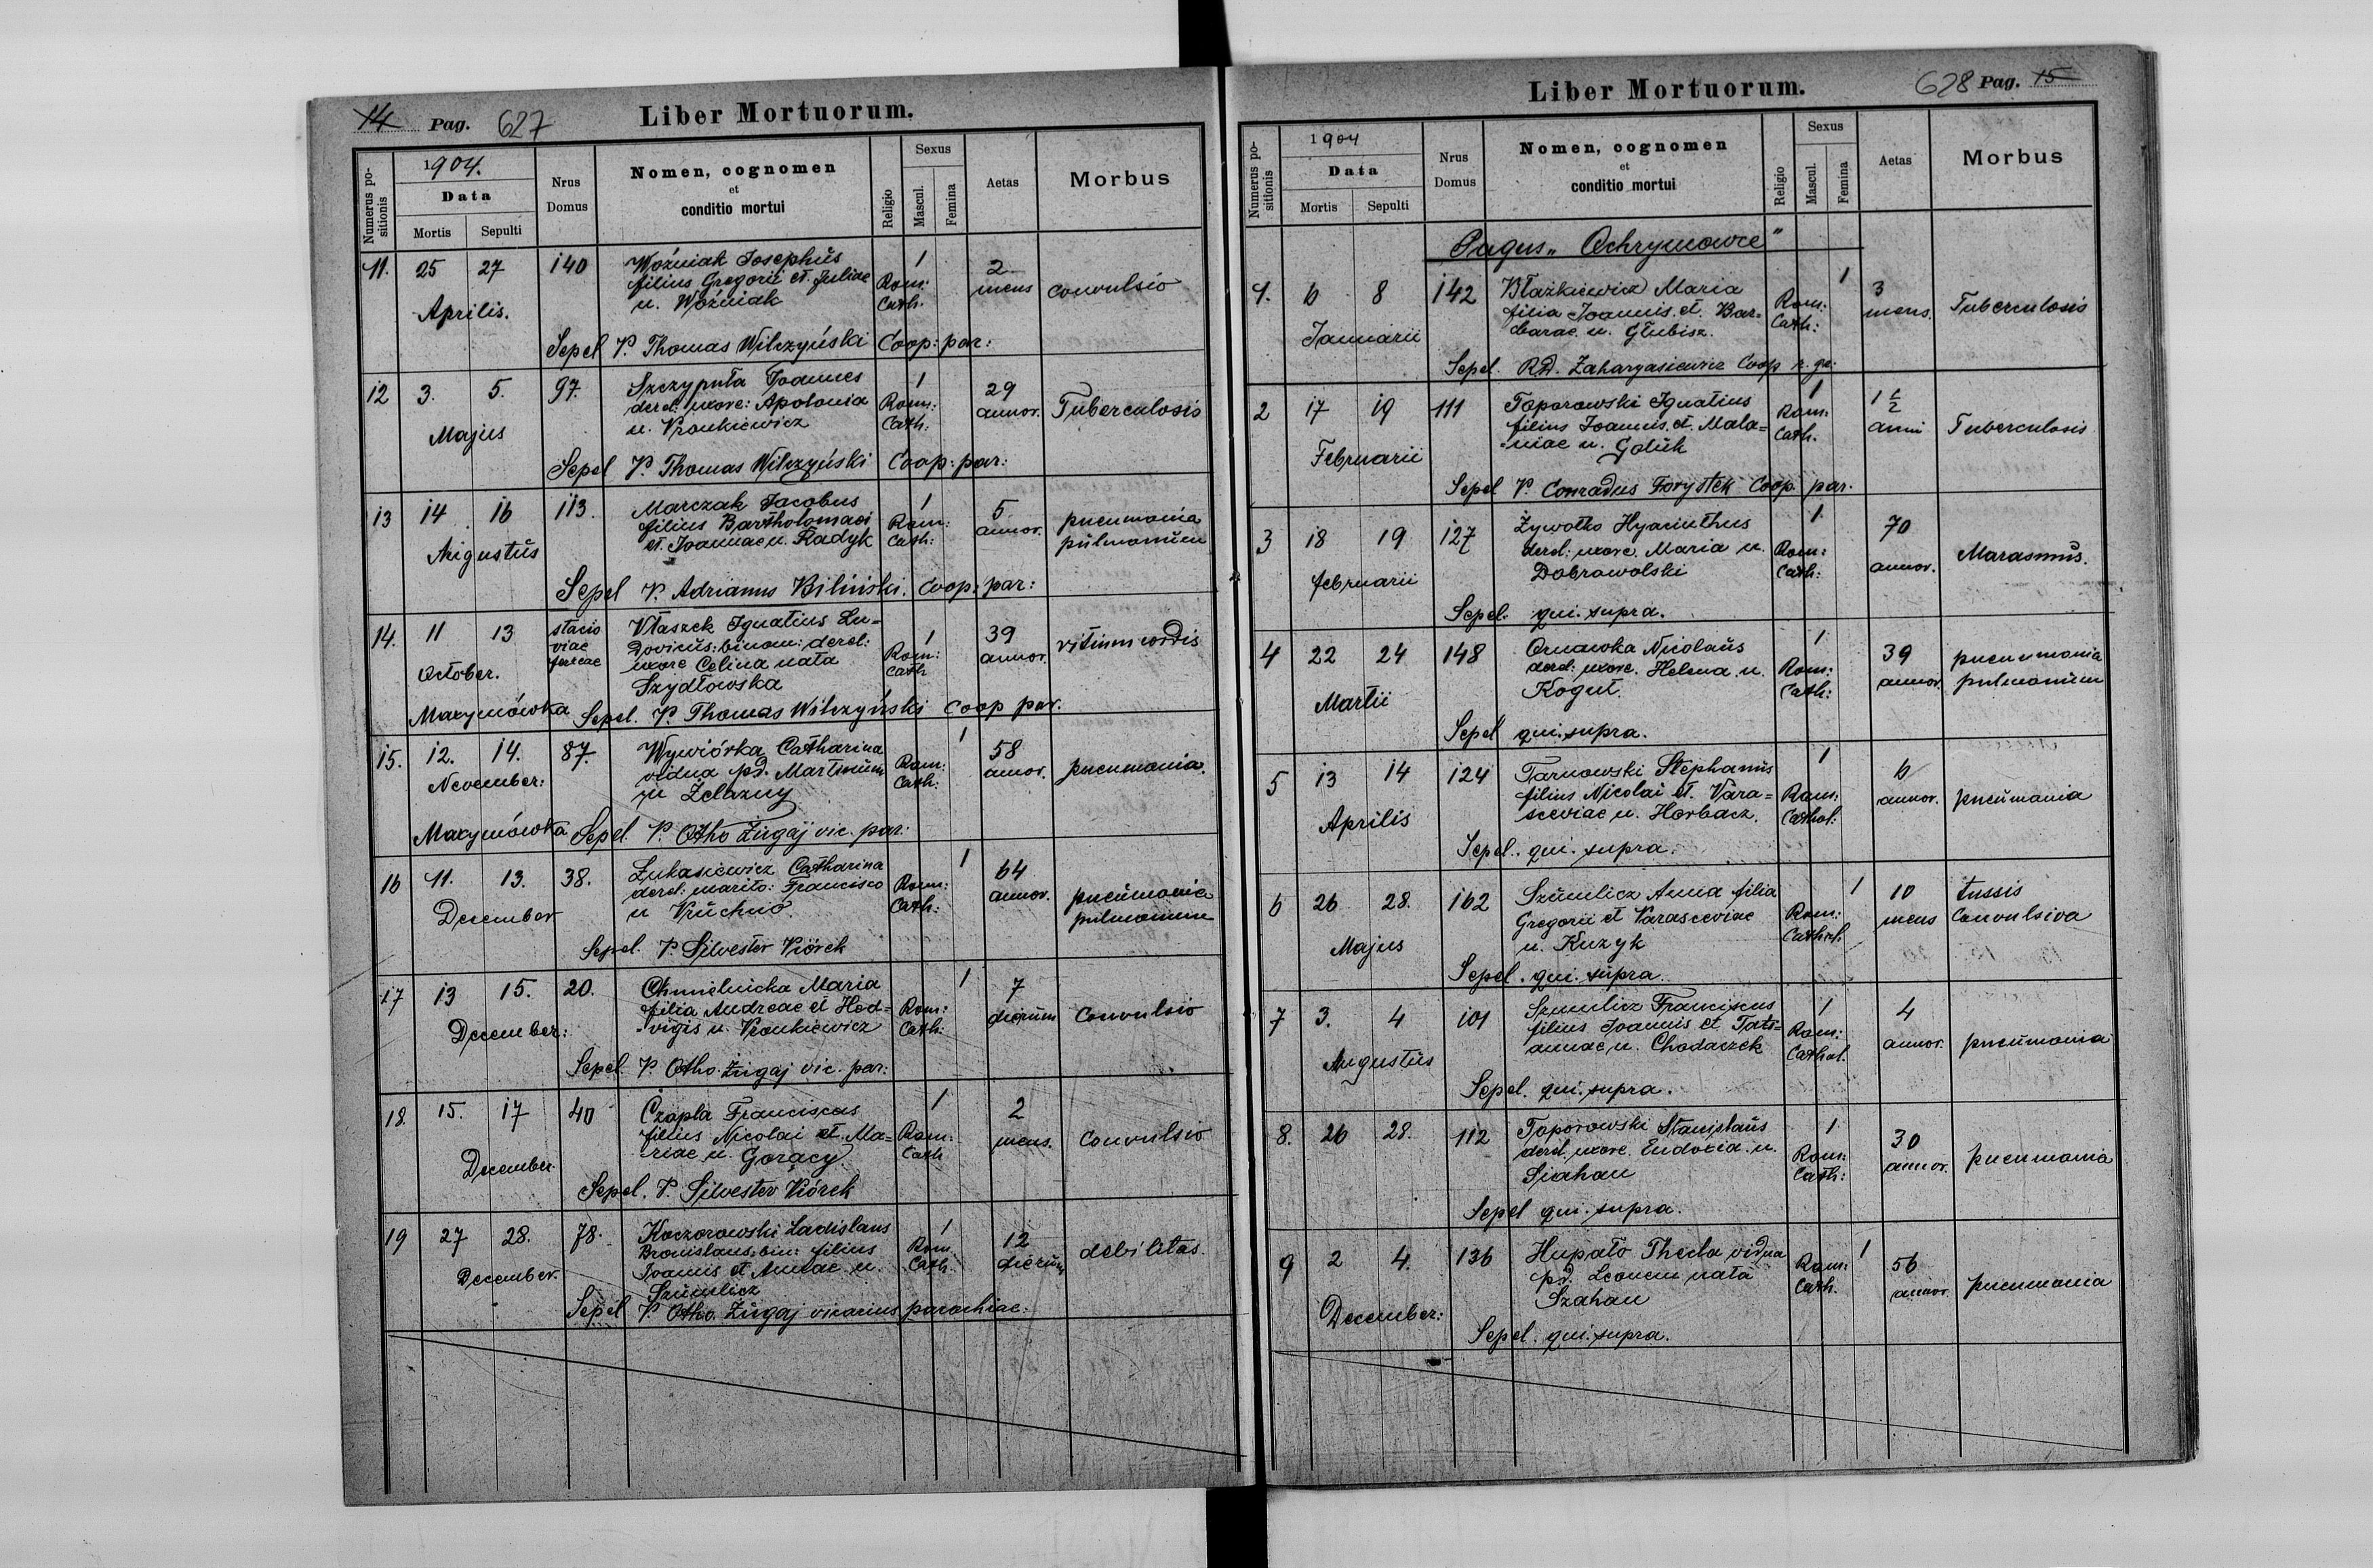 14 Pag. 627
Liber Mortuorum.
Numerus positionis
1904.
Data
Mortis Sepulti
Nrus Domus
Nomen, cognomen
et
conditio mortui
Religio
Sexus
Mascul. Femina
Aetas
Morbus
11. 25 27 140 Woźniak Josephus 1 2
filius Gregorii et Juliae Rom: mens convulsio
n. Woźniak Cath.
Aprilis.
Sepel P. Thomas Wilczyński Coop: par:
12 3. 5. 97. Szczyputa Joannes 1 29
derel: uxore: Apolonia Rom: annor. Tuberculosis
n. Cath.
Majus
Sepel P. Thomas Wilczyński Coop: par:
13 14 16 113. Marczak Jacobus 1 5
filius Bartholomaei Rom: annor. pneumonia
et. Joannae n. Radyk Cath: pulmonum
Augustus
Sepel P. Adrianus Biliński. Coop: par:
14. 11 13 stacio viae ferreae Vłaszek Ignatius Lu-
dovicus: binom: derel: 1 39
uxore Celina nata Rom: annor. vitium cordis
Szydłowska Cath
October.
Maxymówka Sepel. P. Thomas Wilczyński Coop par.
15. 12. 14. 87. Wywiórka Catharina 1 58
vidua pd. Martinum Rom: annor. pneumonia.
n Żelazny Cath:
November:
Maxymówka Sepel. P. Otho Żugaj vic. par:
16 11. 13. 38. Łukasiewicz Catharina 1 64
derel: marito: Francisco Rom: annor. pneumonia
n Cath: pulmonum
December
Sepel. P. Silvester Piórek
17 13 15. 20. Chmielnicka Maria 1 7
filia Andreae et Hed- Rom: dierum Convulsio
vigis n. Cath:
December:
Sepel. P. Otho Żugaj vic. par:
18. 15. 17 40 Czapla Franciscus 1 2
filius Nicolai et. Ma- Rom: mens. Convulsio
riae n. Gorący. Cath
December.
Sepel. P. Silvester Piórek
19 27 28. 78. Koczorowski Ladislaus 1 12
Bronislaus: bin: filius Rom. dierum debilitas.
Joannis et Annae n. Cath.
Szumlicz
December.
Sepel P. Otho. Żugaj vicarius parochiae.
Liber Mortuorum.
628 Pag. 15
Numerus positionis
1904
Data
Mortis Sepulti
Nrus Domus
Nomen, cognomen
et
conditio mortui
Religio
Sexus
Mascul. Femina
Aetas
Morbus
Pagus „Ochrymowce"
1. 6 8 142 Błażkiewicz Maria 1 3
filia Joannis. et. Bar- Rom: mens. Tuberculosis
barae. n. Głubisz. Cath:
Januarii
Sepel. RD. Zahargasiewicz Coop r. gr:
2 17 19 111 Toporowski Ignatius 1 1 1/2
filius Joannis. et. Mala- Rom: anni Tuberculosis
niae n. Goluk Cath.
Februarii
Sepel P. Conradus Forystek Coop. par.
3 18 19 127 Żywotko Hyacinthus 1. 70
derel: uxore. Maria n. Rom: annor. Marasmus.
Dobrowolski Cath:
februarii
Sepel. qui. supra.
4 22 24 148 Ornawka Nicolaus 1 39
derel: uxore. Helena. n. Rom: annor. pneumonia
Kogut. Cath: pulmonum
Martii
Sepel qui. supra.
5 13 14 124 Tarnowski Stephanus 1 6
filius Nicolai et. Para- Rom: annor. pneumonia
sceviae n. Horbacz. Cathol:
Aprilis
Sepel. qui. supra.
6 26 28. 162 Szumlicz Anna filia 1 10 tussis
Gregorii et Parasceviae Rom: mens Convulsiva
n. Kuzyk Cathol.
Majus
Sepel. qui. supra.
7 3. 4 101 Szumlicz Franciscus 1 4
filius Joannis et Tati- Rom: annor. pneumonia
annae, n. Chodaczek Cathol.
Augustus
Sepel. qui. supra.
8. 26 28. 112 Toporowski Stanislaus 1 30
derel. uxore. Eudoxia. n. Rom: annor. pneumonia
Siahan Cath:
Sepel qui. supra.
9 2 4. 136 Hupało Thecla vidua 1 56
pd. Leonem nata Rom: annor. pneumonia
Szahan Cath.
December:
Sepel. qui. supra.